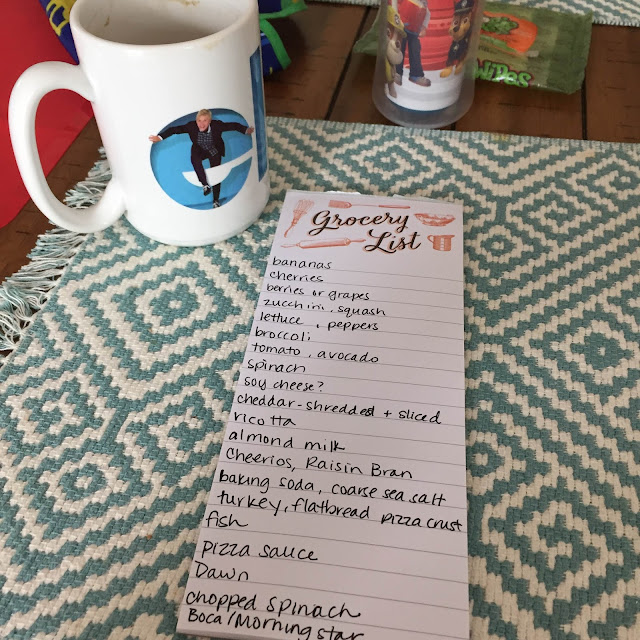 Grocery
List
bananas
cherries
berries or grapes
zucchini, squash
lettuce, peppers
broccoli
tomato, avocado
spinach
soy cheese?
cheddar-shredded + sliced
ricotta
almond milk
Cheerios, Raisin Bran
baking soda, coarse sea salt
turkey, flatbread pizza crust
fish
pizza sauce
Dawn
chopped spinach
Boca/Morningstar